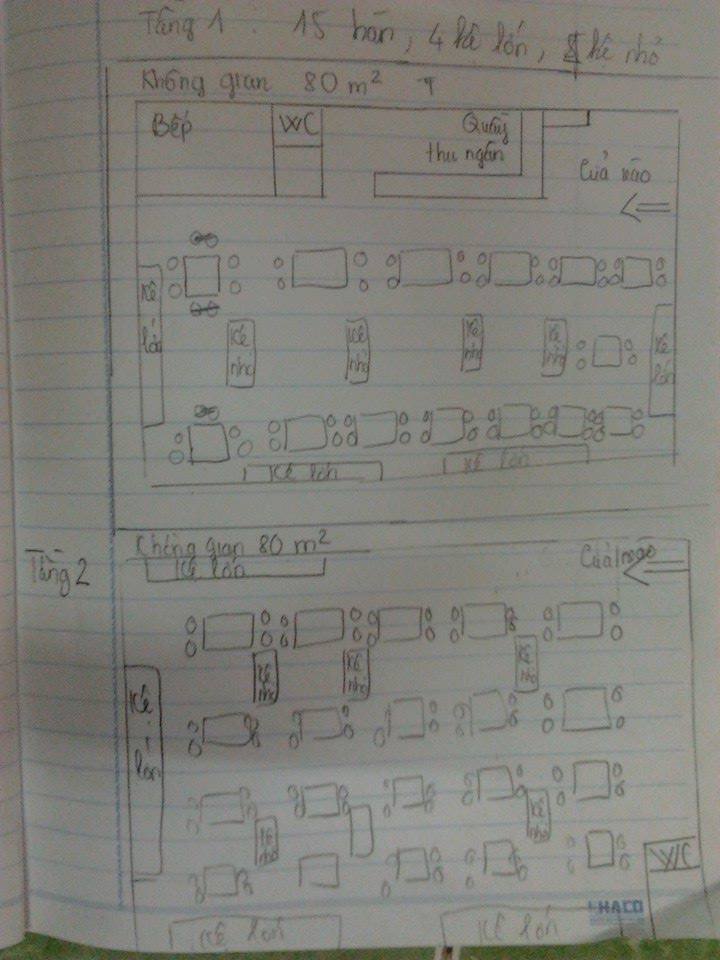 Tầng 1 : 15 bàn, 4 kê lớn, kê nhỏ
Không gian 80 m²
Bếp
WC
Quầy
thu ngân
Cửa vào
Kê
lớn
Kê
nhỏ
Kê
nhỏ
Kê
nhỏ
Kê
nhỏ
Kê
lớn
Kê lớn
Kê lớn
Tầng 2
Không gian 80 m²
Kê lớn
Cửa vào
Kê
nhỏ
Kê
nhỏ
Kê
nhỏ
Kê
lớn
Kê
nhỏ
Kê
nhỏ
WC
Kê lớn
Kê lớn
HACO